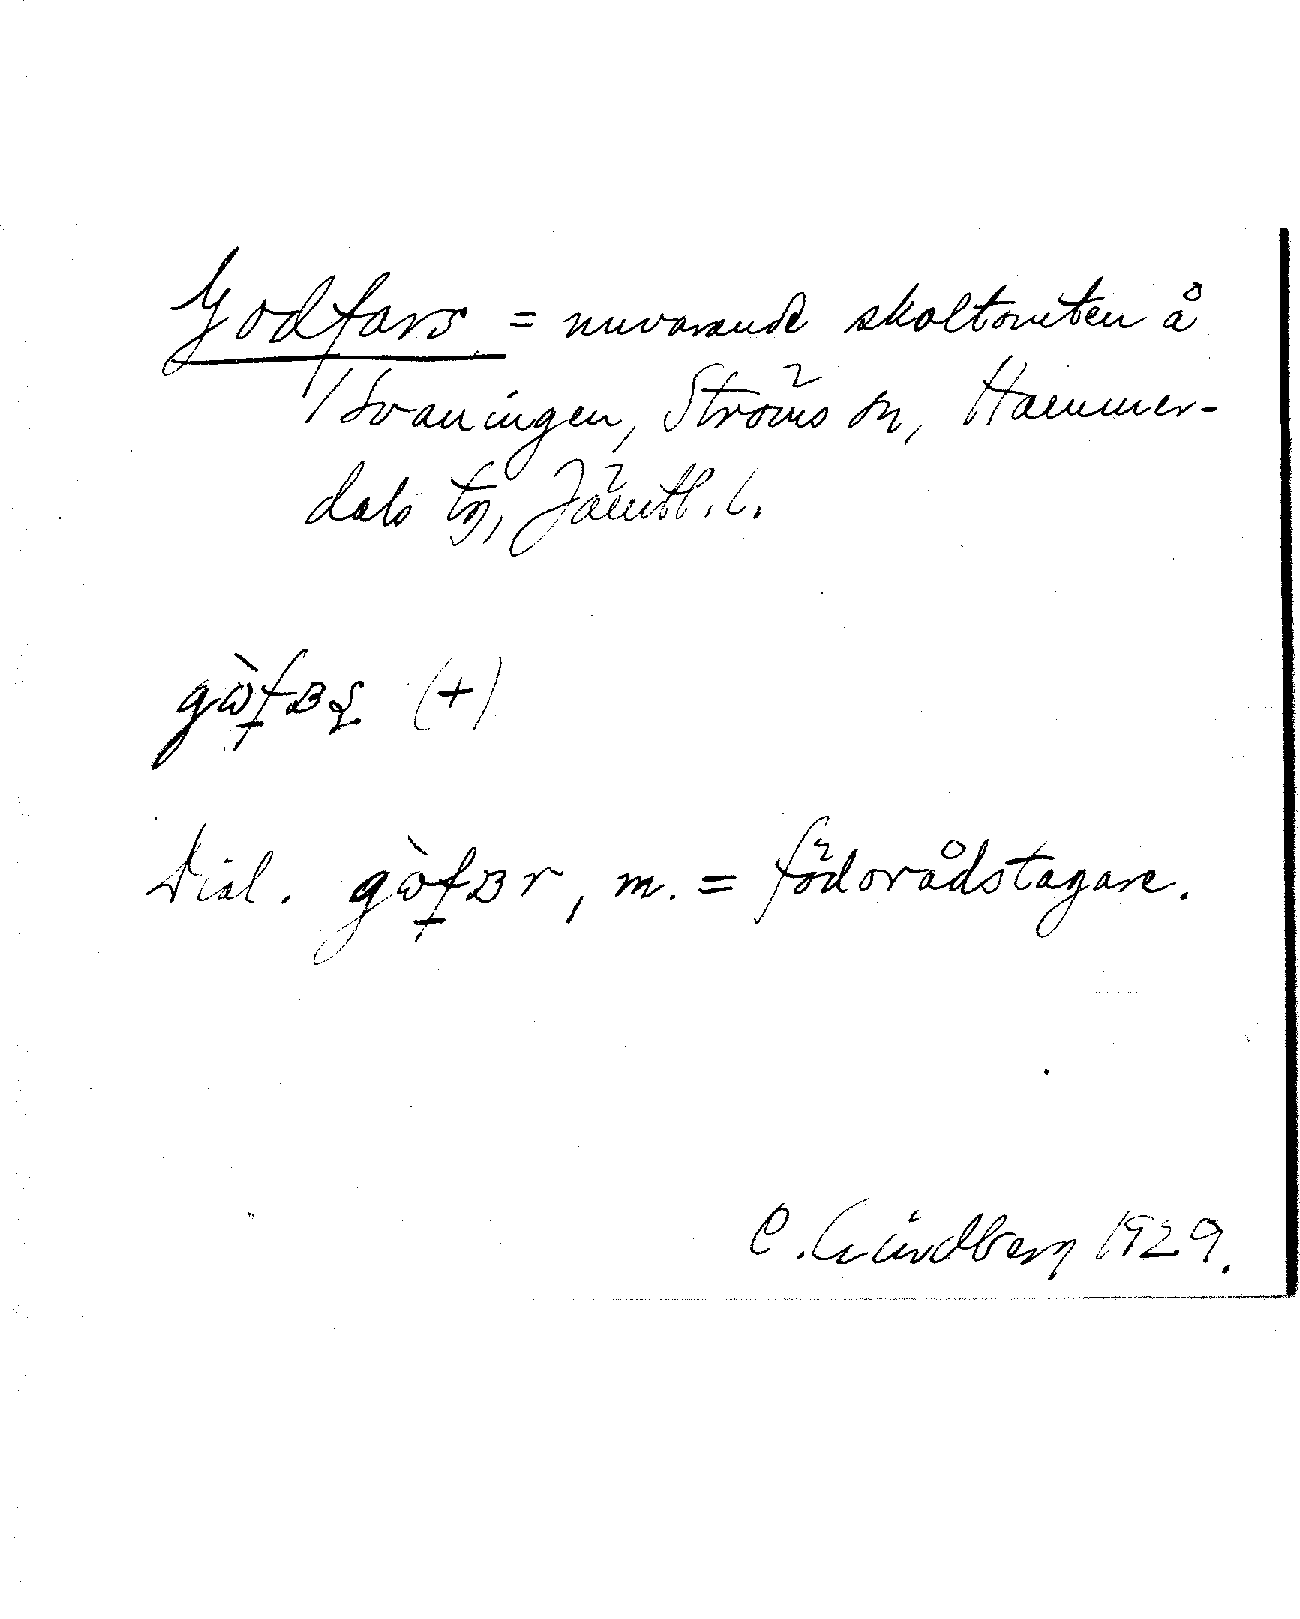 Godfars = nuvarande skoltomten å
Svaningen, Ströms sn, Hammer-
dals tg, Jämtl. l.
(+)
Dial. , m. = födorådstagare.
C. Lindberg 1929.